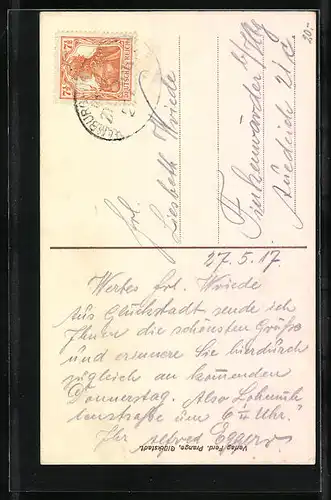 20,-
DEUTSCHES REICH
7½ 7½
Frl.
Liesbeth Wriede
Finkenwärder b/Hbg
Auedeich 21 d.
27.5.17
Wertes Frl. Wriede
Aus Glückstadt sende ich
Ihnen die schönsten Grüße
und erinnere Sie hierdurch
zugleich an kommenden
Donnerstag. Also Lohmüh-
lenstraße um 6 ¼ Uhr.
Ihr Alfred Eggers.
Verlag Ferd. Prange, Glückstadt.